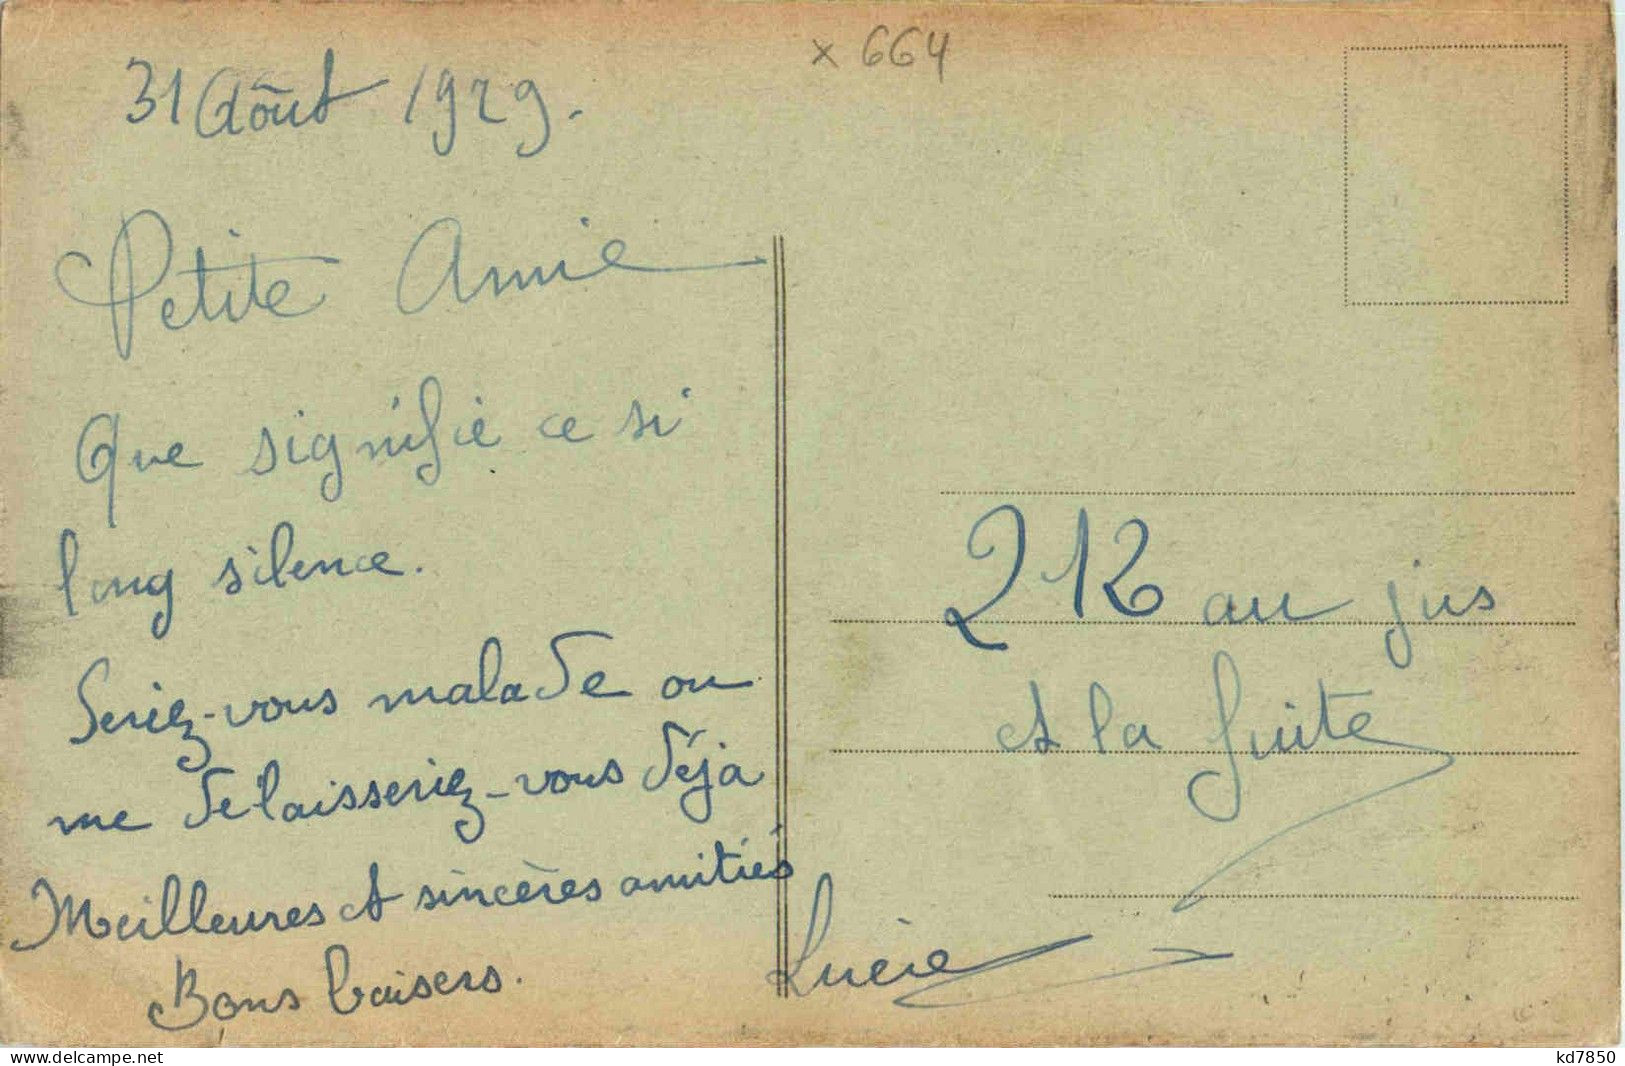 x 664
31 Août 1929.
Petite Amie
Que signifie ce si
long silence.
Seriez-vous malade ou
me délaisseriez-vous déjà
Meilleures et sincères amitiés
Bons baisers.
Lucie
212 au jus
et la fuite
www.delcampe.net
kd7850